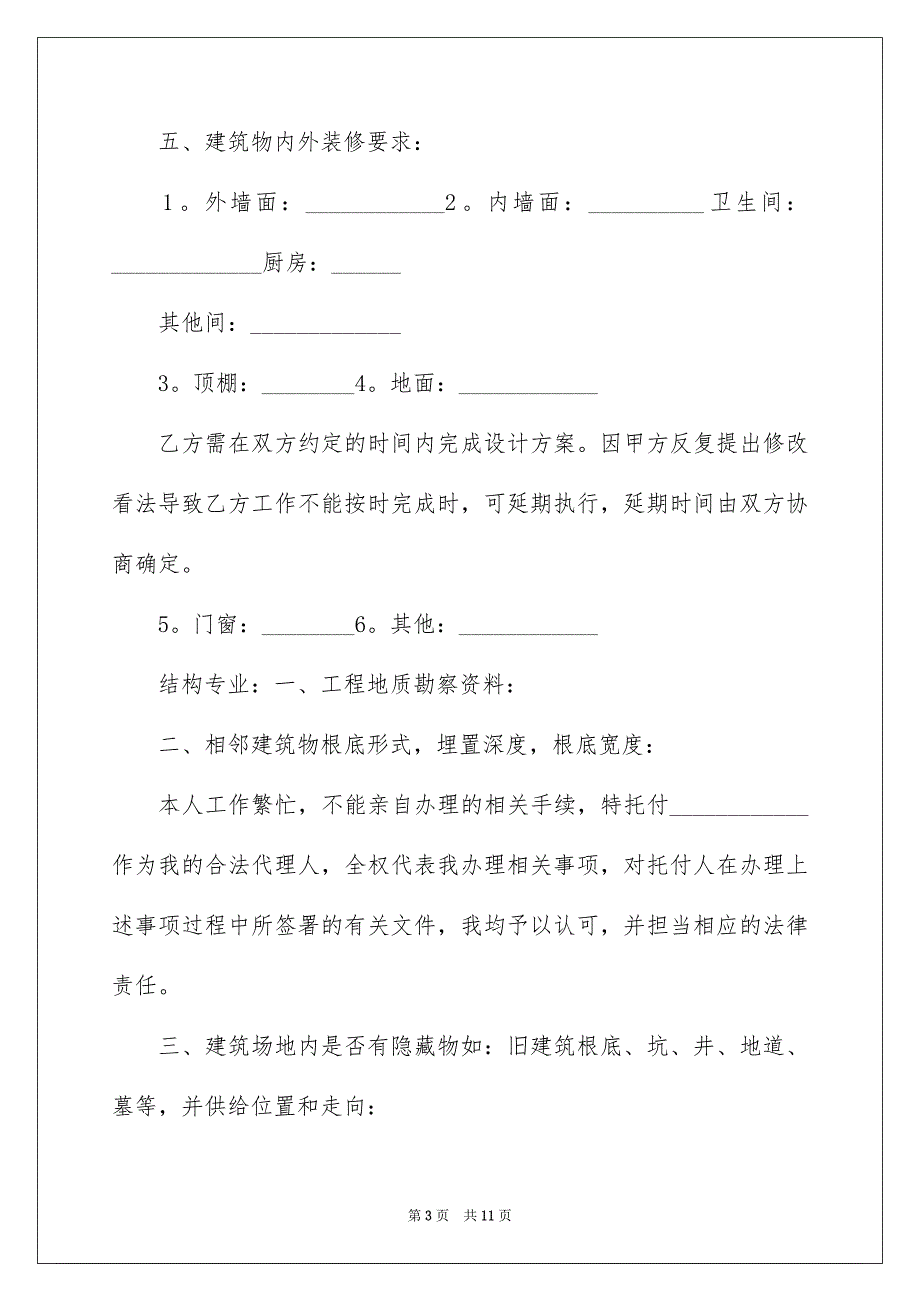 五、建筑物内外装修要求：
1。外墙面：____________2。内墙面：__________卫生间：
_____________厨房：______
其他间：_____________
3。顶棚：________4。地面：____________
乙方需在双方约定的时间内完成设计方案。因甲方反复提出修改
看法导致乙方工作不能按时完成时，可延期执行，延期时间由双方协
商确定。
5。门窗：________6。其他：____________
结构专业：一、工程地质勘察资料：
二、相邻建筑物根底形式，埋置深度，根底宽度：
本人工作繁忙，不能亲自办理的相关手续，特托付____________
作为我的合法代理人，全权代表我办理相关事项，对托付人在办理上
述事项过程中所签署的有关文件，我均予以认可，并担当相应的法律
责任。
三、建筑场地内是否有隐藏物如：旧建筑根底、坑、井、地道、
墓等，并供给位置和走向：
第 3 页 共 11 页